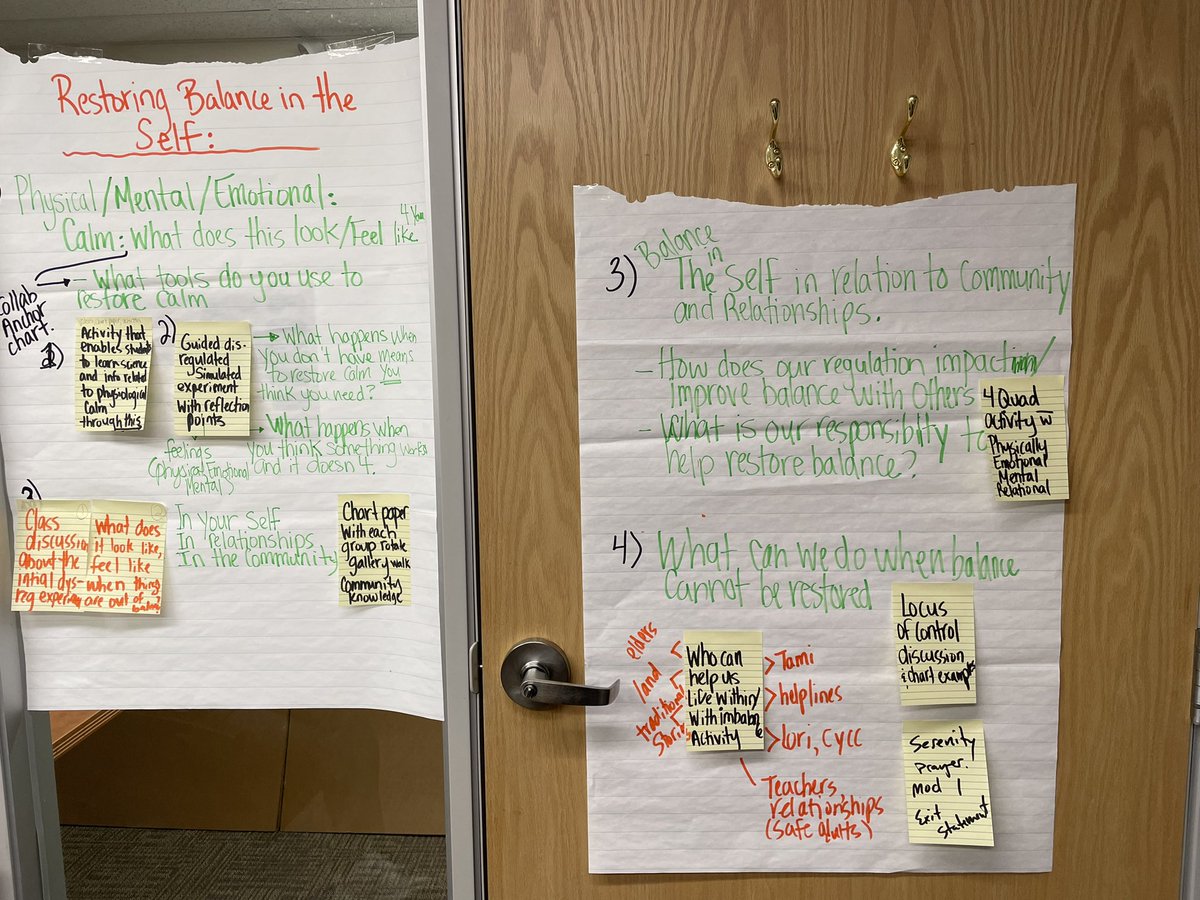 Restoring Balance in the
Self:
Physical/Mental/Emotional:
Calm: What does this look/Feel like
4 You
- What tools do you use to
restore calm
Collab
Anchor
chart.
1)
Activity that
enables students
to learn science
and info related
to physiological
Calm
through this
2)
Guided dis-
regulated
Simulated
experiment
with reflection
points
What happens when
you don't have means
to restore calm You
think you need?
What happens when
you think something works
and it doesn 4.
feelings
(physical, Emotional
Mental)
3)
Class
discussion
about the
intial dys-
reg experien
What does
it look like,
feel like
when things
are out of
balance?
In your Self
In relationships
In the Community
Chart paper
with each
group rotate
gallery walk
Community
knowledge
3) Balance
in
The Self in relation to Community
and Relationships.
- How does our regulation impact
/
Improve balance with Others
- What is our responsibilty to
help restore balance?
4 Quad
activity w
Physically
Emotional
Mental
Relational
4) What can we do when balance
Cannot be restored
Locus
of control
discussion
& chart examples
elders
land
traditional
Stories
Who can
help us
live within/
with imbalance
Activity
Tami
helplines
Lori, CYCC
Teachers
relationships
(safe adults)
Serenity
prayer.
mod 1
Exit
Statement